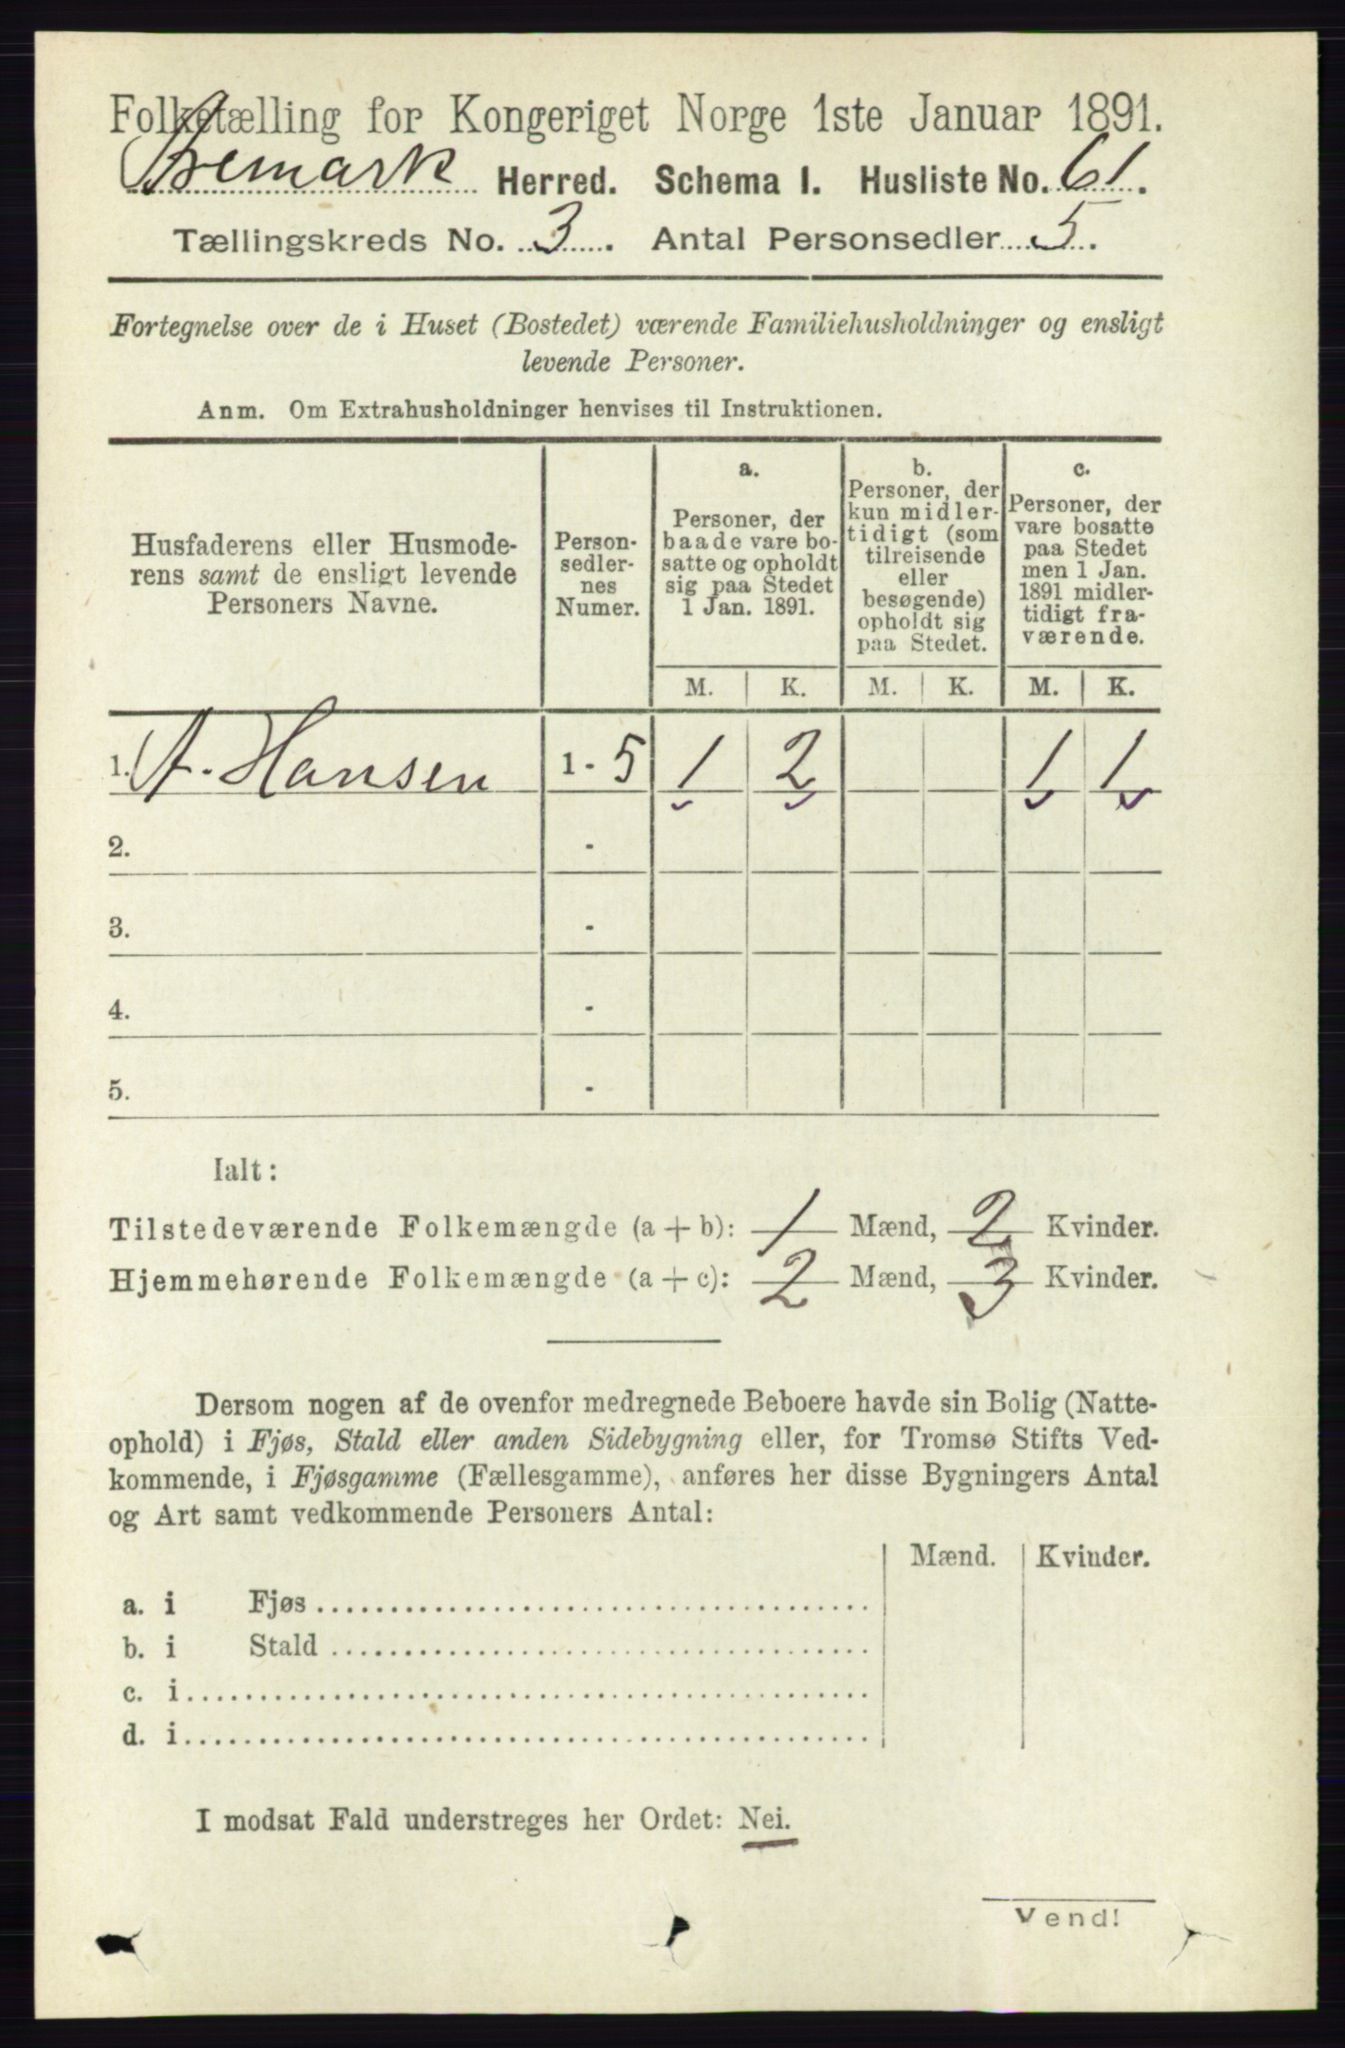 Folketælling for Kongeriget Norge 1ste Januar 1891.
Aremark Herred. Schema I. Husliste No. 61.
Tællingskreds No. 3. Antal Personsedler 5.
Fortegnelse over de i Huset (Bostedet) værende Familiehusholdninger og ensligt
levende Personer.
Anm. Om Extrahusholdninger henvises til Instruktionen.
Husfaderens eller Husmode-
rens samt de ensligt levende
Personers Navne.
Person-
sedler-
nes
Numer.
a.
Personer, der
baade vare bo-
satte og opholdt
sig paa Stedet
1 Jan. 1891.
b.
Personer, der
kun midler-
tidigt (som
tilreisende
eller
besøgende)
opholdt sig
paa Stedet.
c.
Personer, der
vare bosatte
paa Stedet
men 1 Jan.
1891 midler-
tidigt fra-
værende.
M. K. M. K. M. K.
1. A. Hansen 1 - 5 1 2 1 1
2. -
3. -
4. -
5. -
Ialt:
Tilstedeværende Folkemængde (a + b): 1 Mænd, 2 Kvinder.
Hjemmehørende Folkemængde (a + c): 2 Mænd, 3 Kvinder.
Dersom nogen af de ovenfor medregnede Beboere havde sin Bolig (Natte-
ophold) i Fjøs, Stald eller anden Sidebygning eller, for Tromsø Stifts Ved-
kommende, i Fjøsgamme (Fællesgamme), anføres her disse Bygningers Antal
og Art samt vedkommende Personers Antal:
Mænd. Kvinder.
a. i Fjøs
b. i Stald
c. i
d. i
I modsat Fald understreges her Ordet: Nei.
Vend!